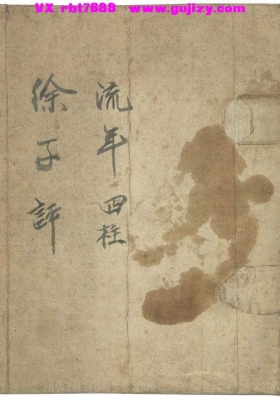 VX rbt7688 www.gujizy.com
流年四柱
徐子評